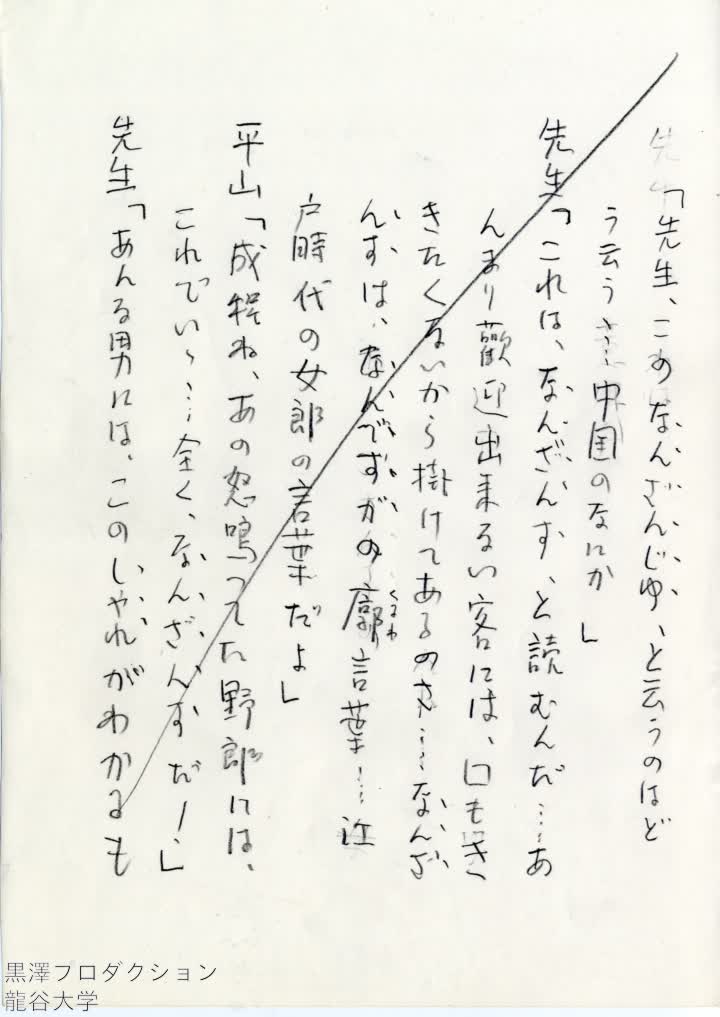 「先生、このなんざんじゅ、と云うのはど
う云う…中国のなにか」
先生「これは、なんざんす、と読むんだ…あ
んまり歓迎出来ない客には、口もき
きたくないから掛けてあるのさ…なんざ
んすは、なんですかの廓言葉…江
くるわ
戸時代の女郎の言葉だよ」
平山「成程ね、あの怒鳴ってた野郎には、
これでいゝ…全く、なんざんすだ！」
先生「あんな男には、このしゃれがわかるも
黒澤プロダクション
龍谷大学